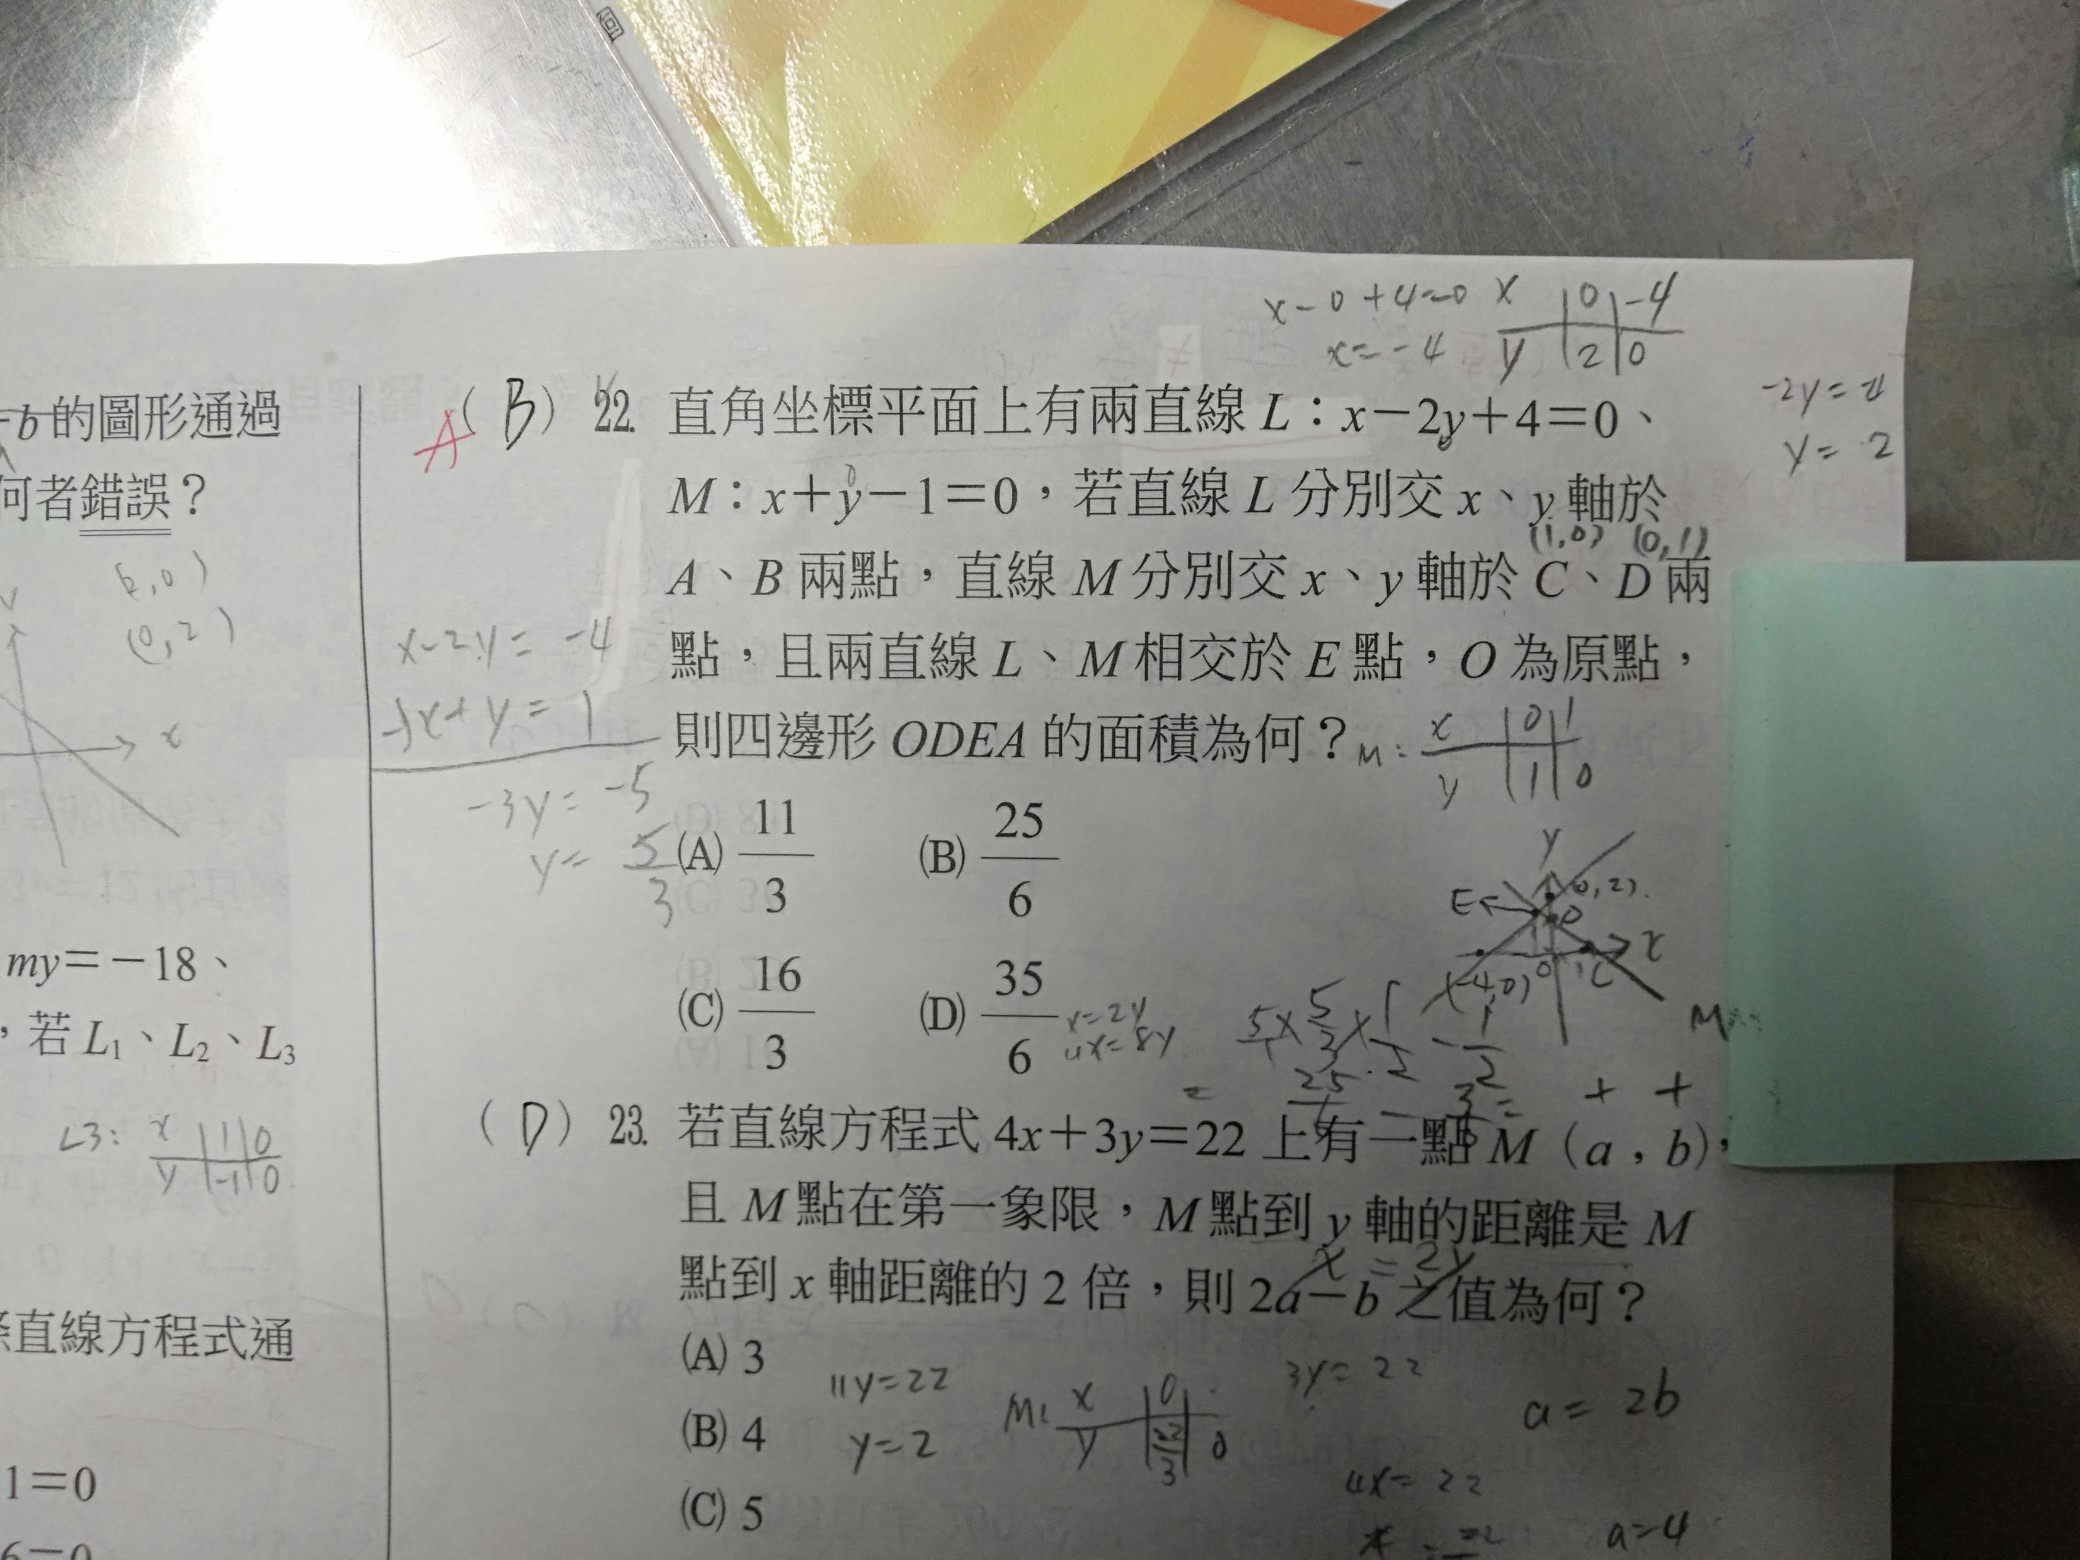 -b的圖形通過
何者錯誤？
(0,2)
x
my=-18、
，若 L₁、L₂、L₃
L3: x 1 0
y -1 0
直線方程式通
1=0
6=0
x-0+4=0
x=-4
x 0 -4
y 2 0
-2y=-4
y=2
A
(B) 22. 直角坐標平面上有兩直線 L：x-2y+4=0、
M：x+y-1=0，若直線 L 分別交 x、y 軸於
(1,0) (0,1)
A、B 兩點，直線 M 分別交 x、y 軸於 C、D 兩
點，且兩直線 L、M 相交於 E 點，O 為原點，
則四邊形 ODEA 的面積為何？
x-2y=-4
-)x+y=1
-3y=-5
y=5/3
M: x 0 1
y 1 0
(A) 11/3 (B) 25/6
(C) 16/3 (D) 35/6
y
E (0,2)
D
x
(-4,0) O 1 C
x=2y
4x=8y
5/1×5/3×1/2-1/2
=25/6-3/6=
M
+ +
(D) 23. 若直線方程式 4x+3y=22 上有一點 M (a，b)，
且 M 點在第一象限，M 點到 y 軸的距離是 M
x=2y
點到 x 軸距離的 2 倍，則 2a-b 之值為何？
(A) 3
(B) 4
(C) 5
11y=22
y=2
M: x 0
y 22/3 0
3y=22
a=2b
4x=22
a=4